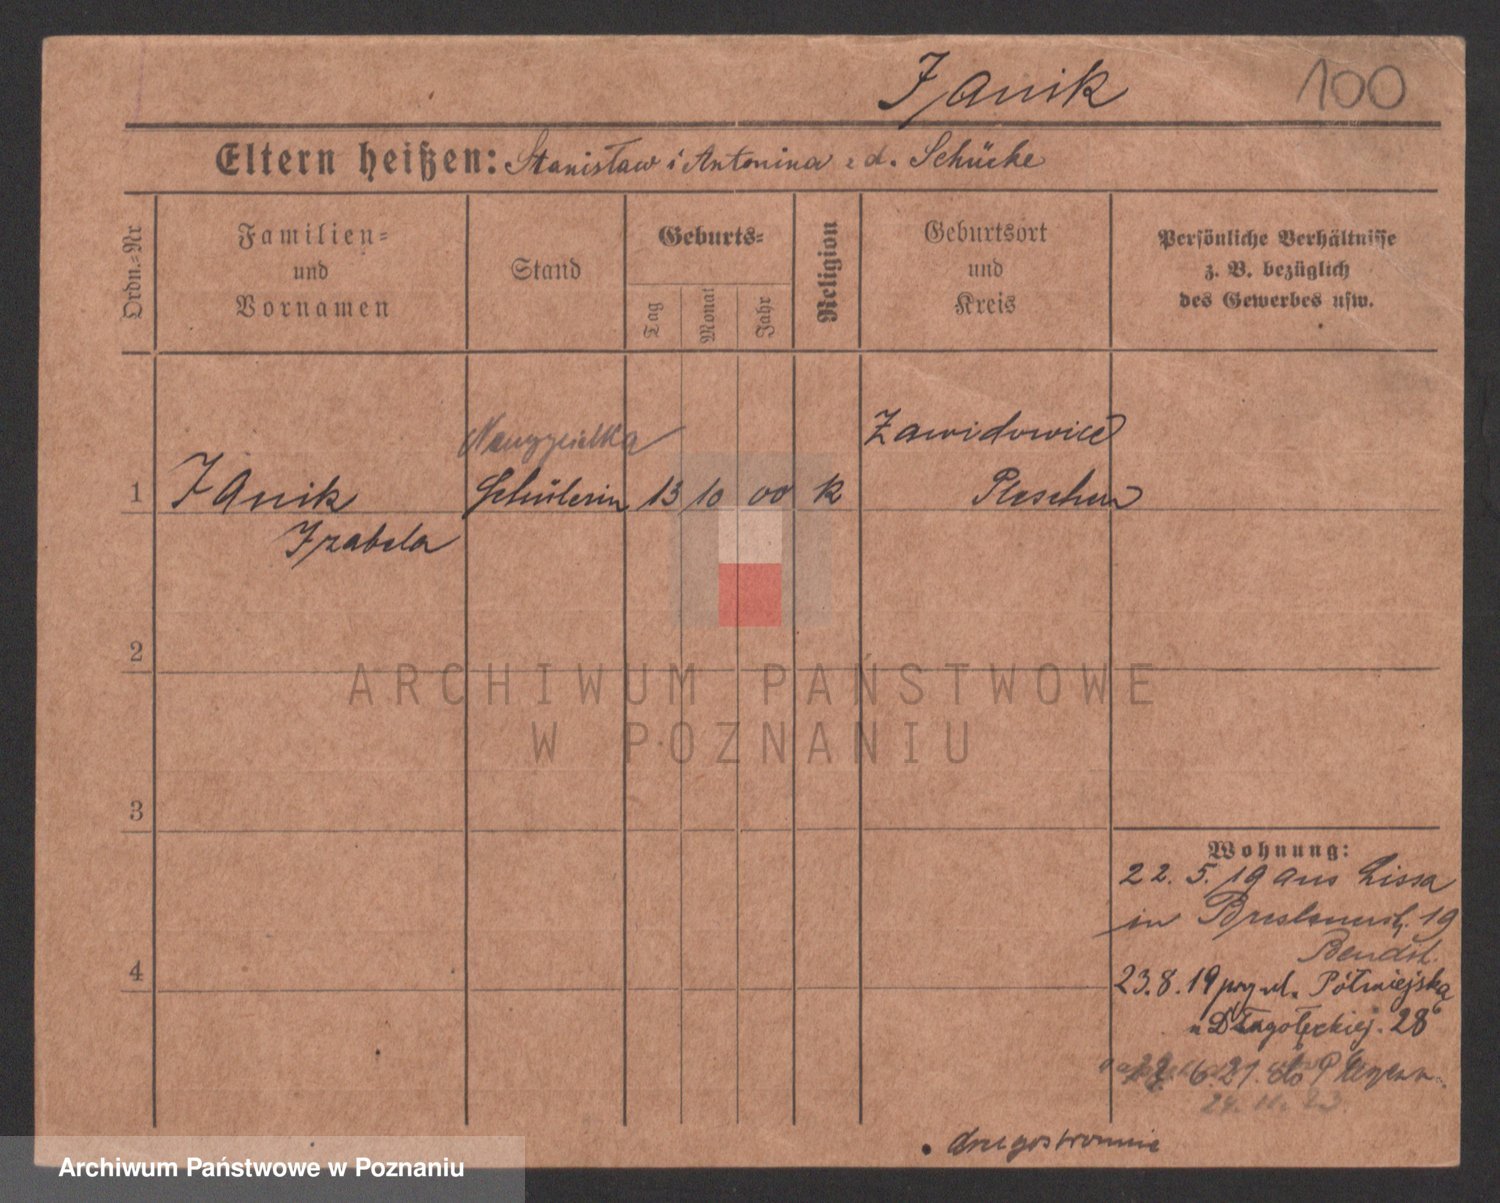 Janik 100
Eltern heißen: Stanisław i Antonina z d. Schücke
Ordn.-Nr.
Familien-
und
Vornamen
Stand
Geburts-
Tag
Monat
Jahr
Religion
Geburtsort
und
Kreis
Persönliche Verhältnisse
z. B. bezüglich
des Gewerbes usw.
Nauczycielka
Zawidowice
1 Janik Schülerin 13 10 00 k Pleschen
Izabela
2
ARCHIWUM PAŃSTWOWE
W POZNANIU
3
Wohnung:
22. 5. 19 aus Lissa
in 19
4
23. 8. 19 przy ul. Półwiejska
u 28
6. 21. do
24. 11. 23.
drugostronnie
Archiwum Państwowe w Poznaniu